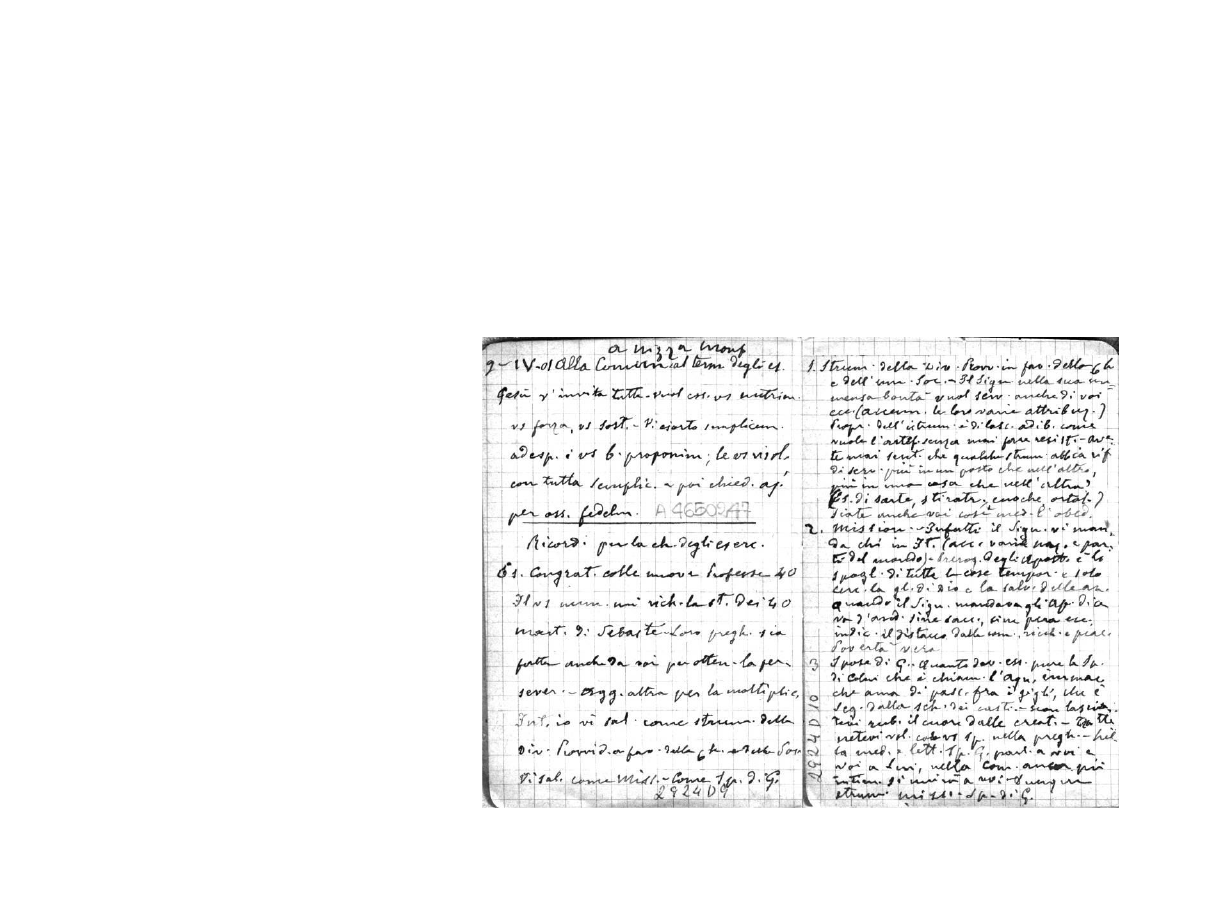 a nizza monf
9-IV-01 Alla Comun al term degli es.
Gesù v'invita tutte - vuol ess. vs nutrim.
vs forza, vs sost. - Vi esorto semplicem.
ad esp. i vs b. proponim; le vs risol.
con tutta semplic. e poi chied. aj.
per oss. fedelm. A 4650947
Ricordi per la ch. degli eserc.
Es. Congrat. colle nuove Professe 40
Il vs num. mi rich. la st. dei 40
mart. di Sebaste. Loro pregh. sia
fatta anche da voi per otten. la per-
sever. - Agg. altra per la moltiplic.
Int. io vi sal. come strum. della
Div. Provvid. a fav. della Ch. e della Soc.
Vi sal. come Miss. - Come Sp. di G.
2924D9
1. Strum. della Div. Provv. in fav. della Ch
e dell'um. Soc. - Il Sign. nella sua im-
mensa bontà vuol serv. anche di voi
ecc (accenn. le loro varie attribuz.)
Propr. dell'istrum. è di lasc. adib. come
vuole l'artef. senza mai fare resist. - Ave-
te mai sent. che qualche strum. abbia rif
di serv. più in un posto che nell'altro,
più in una cosa che nell'altra?
(Es. di sarte, stiratr. cuoche ortol.)
Siate anche voi così med. l'obed.
2. Mission. - Infatti il Sign. vi man-
da chi in It. (acc. varie naz. e par-
te del mondo) - Prerog. degli Apost. è lo
spogl. di tutte le cose tempor. e solo
cerc. la gl. di Dio e la salv. delle an.
Quando il Sign. mandava gli Ap. dice
va d'and. sine sacc., sine pera ecc.
indic. il distacco dalle com., ricch. e piac.
Povertà vera
3 Spose di G. Quanto dev. ess. pure le Sp.
di Colui che è chiam. l'Agn. immac.
che ama di pasc. fra i gigli, che è
seg. dalla sch. dei casti. - non lascia-
tevi rub. il cuore dalle creat. -
vol. col vs Sp. nella pregh. -
la med. e lett. sp. G. parl. a voi e
voi a Lui, nella Com. ancor più
intim. si unirà a voi - Dunque
strum. miss. - Sp. di G.
2924D10